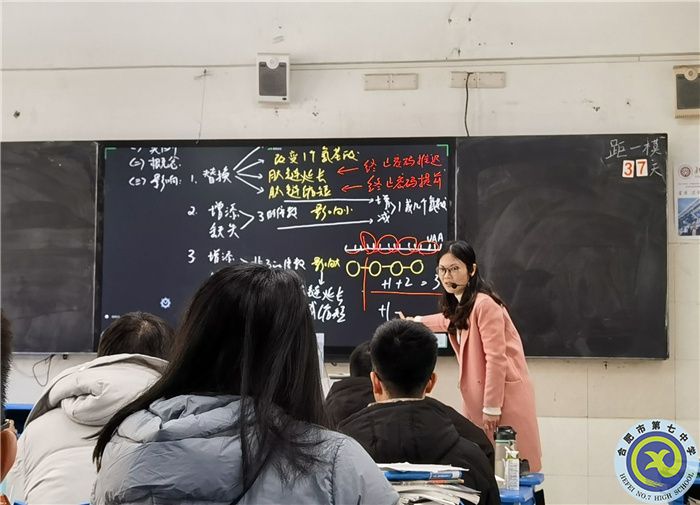 (二) 概念
(三) 影响: 1. 替换
改变1个氨基酸
肽链延长 终止密码推迟
肽链缩短 终止密码提前
2. 增添
缺失 3的倍数 影响小 增 减 1或几个氨基酸
UAA
3. 增添 非3的倍数 影响大
链延长
或缩短
+1+2=3
+1
距一模
37天
合肥市第七中学
HEFEI NO.7 HIGH SCHOOL